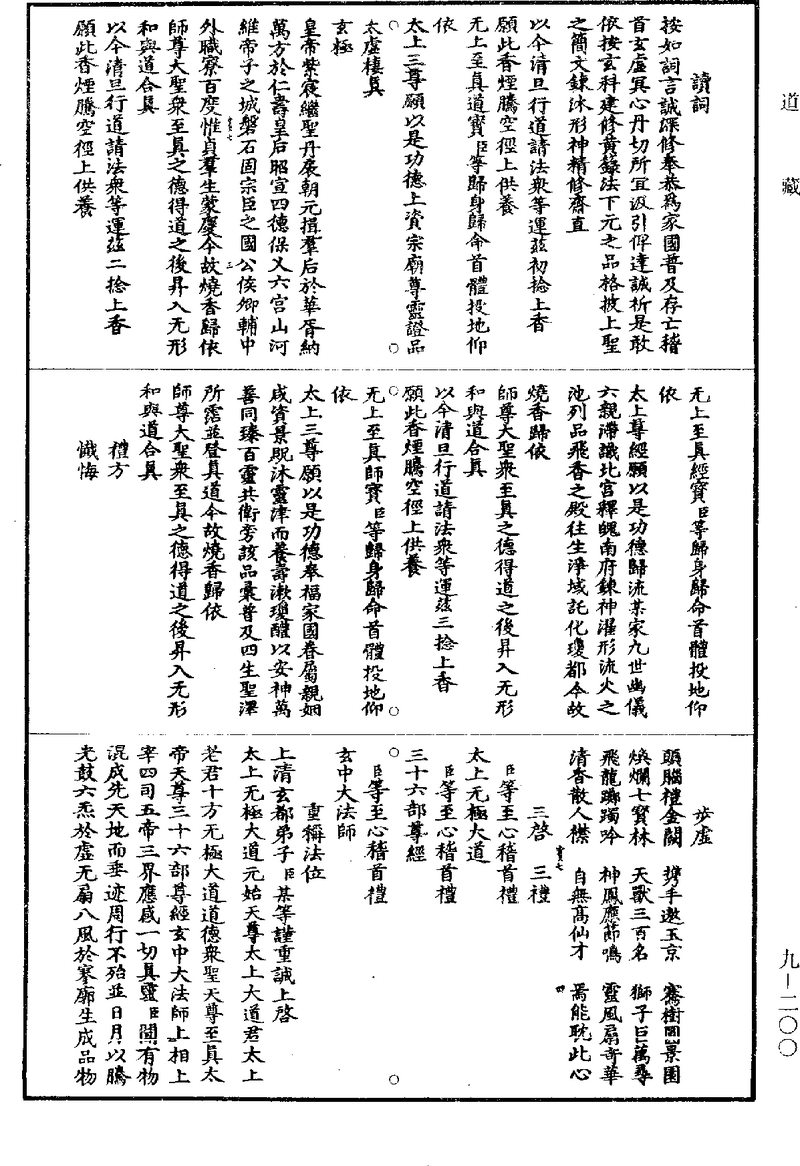 道藏
讀詞
按如詞言誠深修奉恭爲家國普及存亡稽
首玄虛冥心丹切所宜汲引俾達誠祈是敢
依按玄科建修黃籙法下元之品格披上聖
之簡文鍊沐形神精修齋直
以今清旦行道請法衆等運茲初捻上香
願此香煙騰空徑上供養
无上至真道寶臣等歸身歸命首體投地仰
依
太上三尊願以是功德上資宗廟尊靈證品
太虛棲真
玄極
皇帝紫宸繼聖丹扆朝元揖羣后於華胥納
萬方於仁壽皇后昭宣四德保乂六宮山河
維帝子之城磐石固宗臣之國公侯卿輔中
外職寮百度惟貞羣生蒙慶今故燒香歸依
師尊大聖衆至真之德得道之後昇入无形
和與道合真
以今清旦行道請法衆等運茲二捻上香
願此香煙騰空徑上供養
无上至真經寶臣等歸身歸命首體投地仰
依
太上尊經願以是功德歸流某家九世幽儀
六親滯識北宮釋魄南府鍊神濯形流火之
池列品飛香之殿往生淨域託化瓊都今故
燒香歸依
師尊大聖衆至真之德得道之後昇入无形
和與道合真
以今清旦行道請法衆等運茲三捻上香
願此香煙騰空徑上供養
无上至真師寶臣等歸身歸命首體投地仰
依
太上三尊願以是功德奉福家國眷屬親姻
咸資景貺沐靈津而養壽漱瓊醴以安神萬
善同臻百靈共衛旁該品彙普及四生聖澤
所霑並登真道今故燒香歸依
師尊大聖衆至真之德得道之後昇入无形
和與道合真
禮方
懺悔
步虛
頭腦禮金闕 携手遨玉京 騫樹圓景園
煥爛七寶林 天獸三百名 獅子巨萬尋
飛龍躑躅吟 神鳳應節鳴 靈風扇奇華
清香散人襟 自無高仙才 焉能耽此心
三啓 三禮
臣等至心稽首禮
太上无極大道
臣等至心稽首禮
三十六部尊經
臣等至心稽首禮
玄中大法師
重稱法位
上清玄都弟子臣某等謹重誠上啓
太上无極大道元始天尊太上大道君太上
老君十方无極大道道德衆聖天尊至真太
帝天尊三十六部尊經玄中大法師上相上
宰四司五帝三界應感一切真靈臣聞有物
混成先天地而垂迹周行不殆並日月以騰
光鼓六炁於虛无扇八風於寥廓生成品物
九－二〇〇